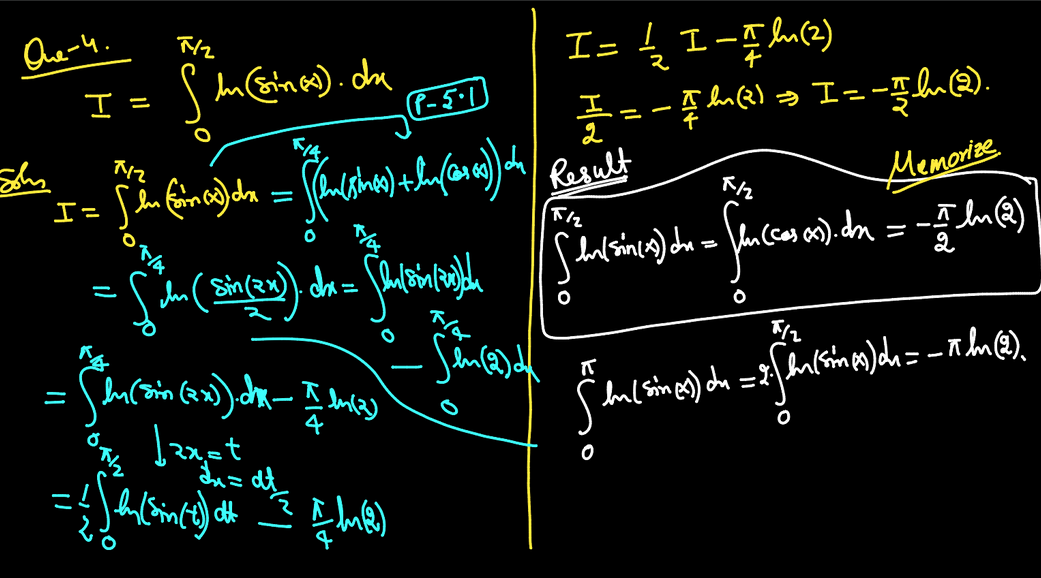 Que-4.
I = ∫₀^{π/2} ln(sin(x)) · dx
P-5.1
Soln
I = ∫₀^{π/2} ln(sin(x)) dx = ∫₀^{π/4} (ln(sin(x)) + ln(cos(x))) dx
= ∫₀^{π/4} ln(sin(2x)/2) · dx = ∫₀^{π/4} ln(sin(2x)) dx
− ∫₀^{π/4} ln(2) dx
= ∫₀^{π/4} ln(sin(2x)) · dx − π/4 ln(2)
↓ 2x = t
dx = dt/2
= 1/2 ∫₀^{π/2} ln(sin(t)) dt − π/4 ln(2)
I = 1/2 I − π/4 ln(2)
I/2 = − π/4 ln(2) ⇒ I = −π/2 ln(2).
Result
Memorize
∫₀^{π/2} ln(sin(x)) dx = ∫₀^{π/2} ln(cos(x)) · dx = −π/2 ln(2)
∫₀^{π} ln(sin(x)) dx = 2·∫₀^{π/2} ln(sin(x)) dx = −π ln(2).